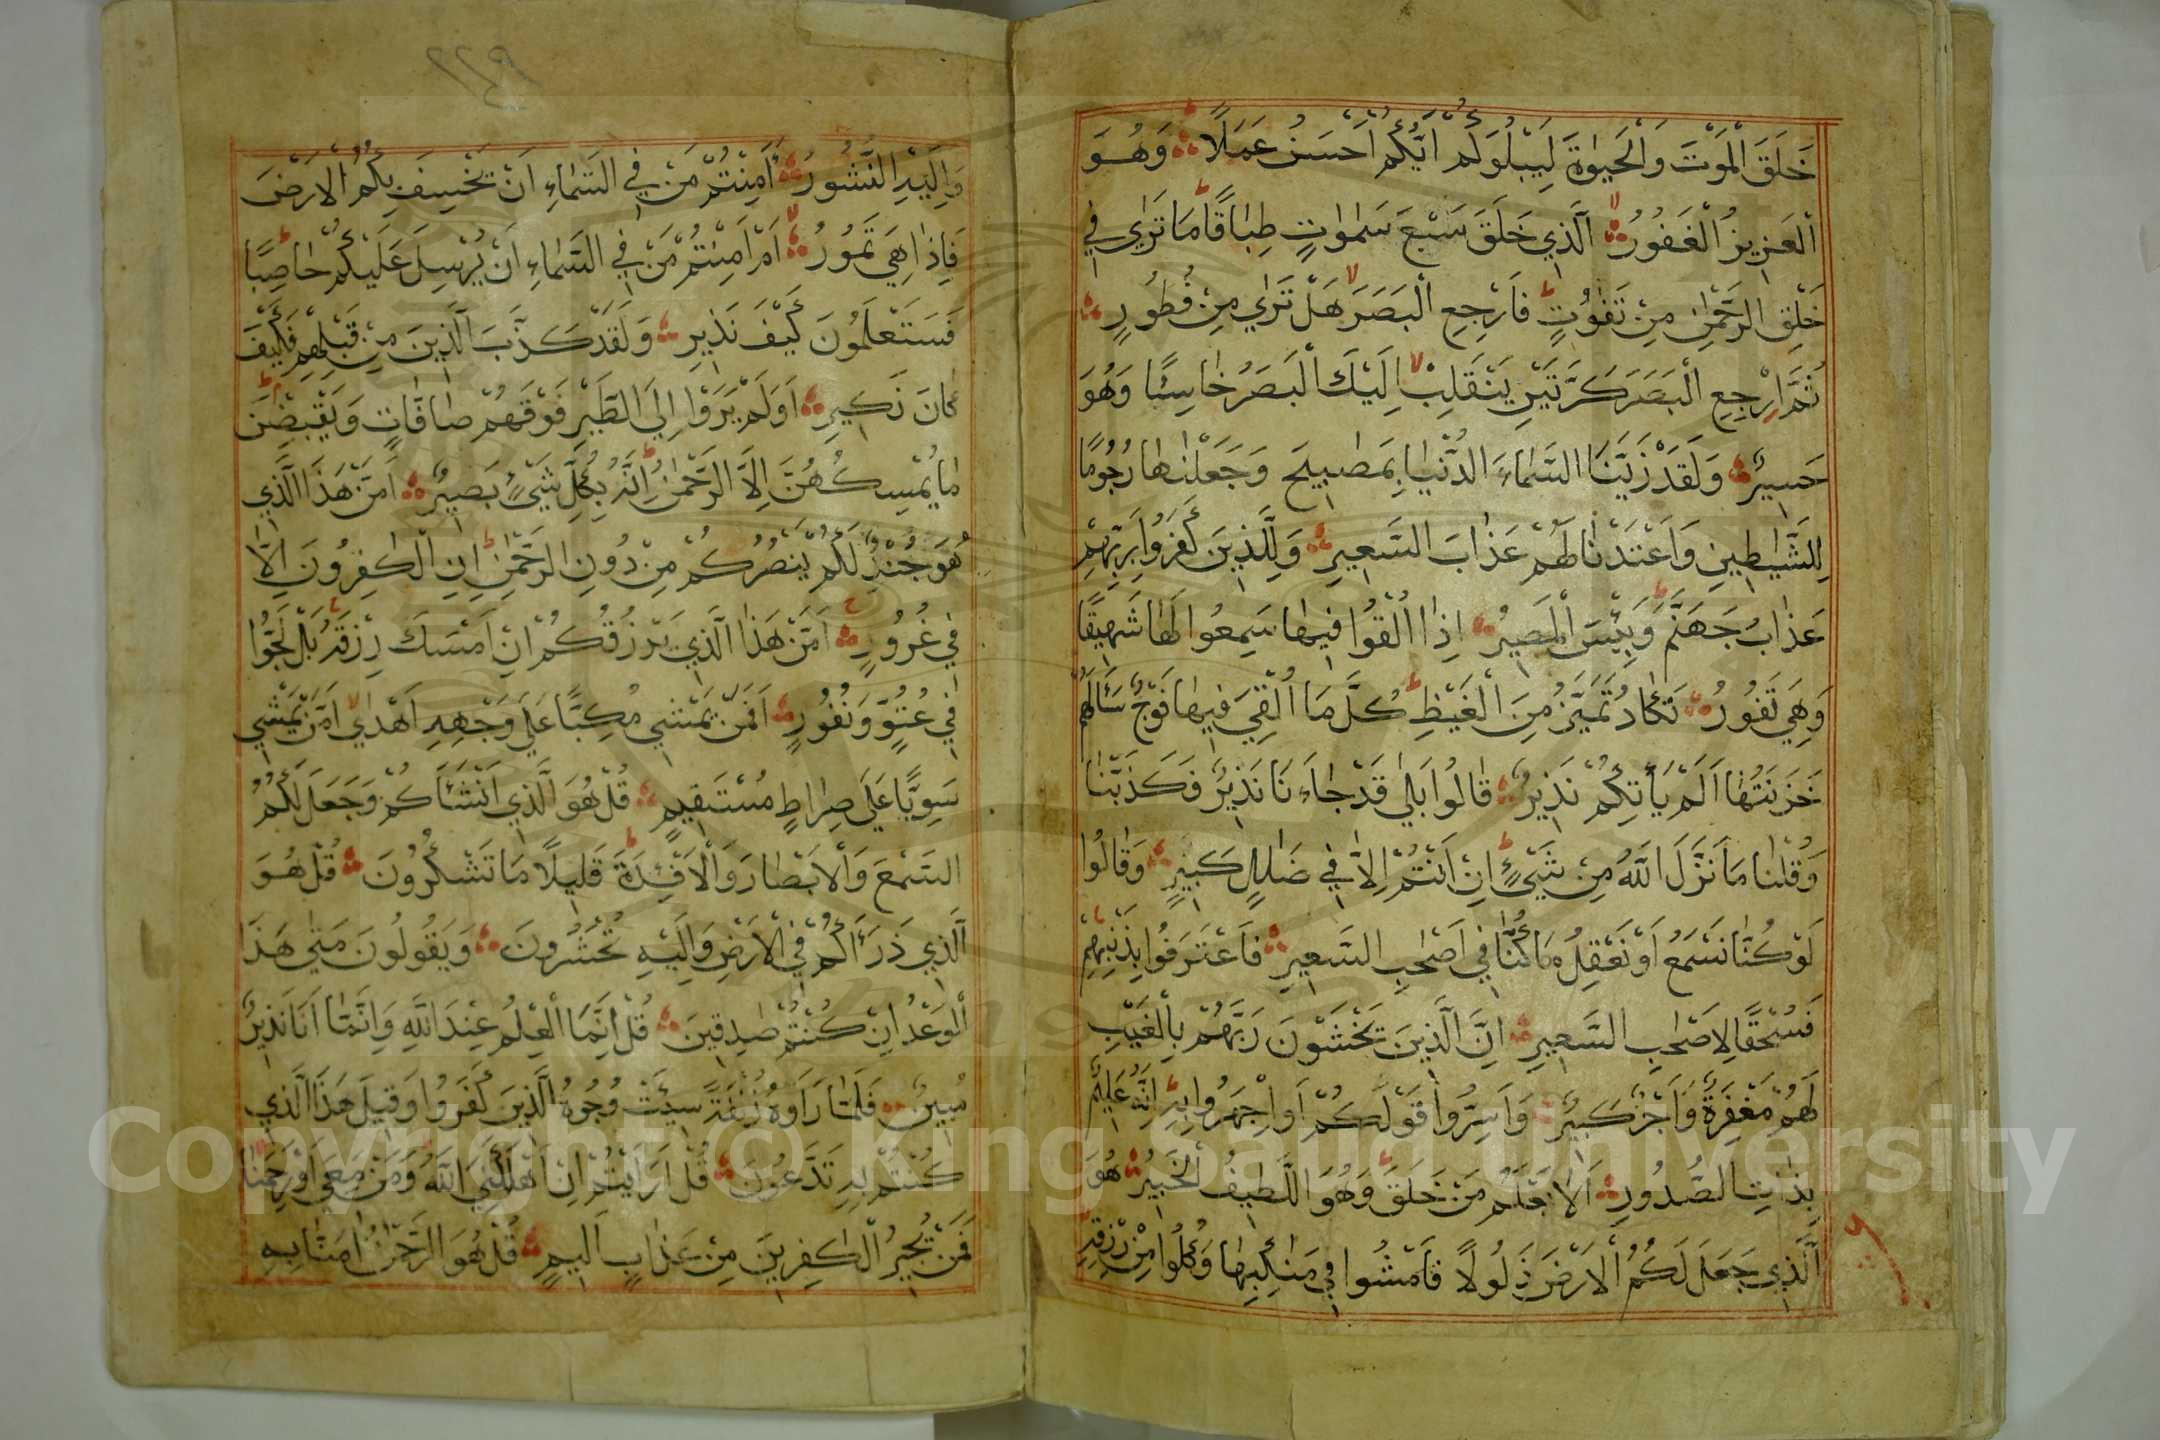 خَلَقَ الْمَوْتَ وَالْحَيٰوةَ لِيَبْلُوَكُمْ اَيُّكُمْ اَحْسَنُ عَمَلًا وَهُوَ
الْعَزِيزُ الْغَفُورُ الَّذِي خَلَقَ سَبْعَ سَمٰوٰتٍ طِبَاقًا مَا تَرٰي فِي
خَلْقِ الرَّحْمٰنِ مِنْ تَفٰوُتٍ فَارْجِعِ الْبَصَرَ هَلْ تَرٰي مِنْ فُطُورٍ
ثُمَّ ارْجِعِ الْبَصَرَ كَرَّتَيْنِ يَنْقَلِبْ اِلَيْكَ الْبَصَرُ خَاسِئًا وَهُوَ
حَسِيرٌ وَلَقَدْ زَيَّنَّا السَّمَاءَ الدُّنْيَا بِمَصٰبِيحَ وَجَعَلْنٰهَا رُجُومًا
لِلشَّيٰطِينِ وَاَعْتَدْنَا لَهُمْ عَذَابَ السَّعِيرِ وَلِلَّذِينَ كَفَرُوا بِرَبِّهِمْ
عَذَابُ جَهَنَّمَ وَبِئْسَ الْمَصِيرُ اِذَا اُلْقُوا فِيهَا سَمِعُوا لَهَا شَهِيقًا
وَهِيَ تَفُورُ تَكَادُ تَمَيَّزُ مِنَ الْغَيْظِ كُلَّمَا اُلْقِيَ فِيهَا فَوْجٌ سَأَلَهُمْ
خَزَنَتُهَا اَلَمْ يَأْتِكُمْ نَذِيرٌ قَالُوا بَلٰي قَدْ جَاءَنَا نَذِيرٌ فَكَذَّبْنَا
وَقُلْنَا مَا نَزَّلَ اللّٰهُ مِنْ شَيْءٍ اِنْ اَنْتُمْ اِلَّا فِي ضَلٰلٍ كَبِيرٍ وَقَالُوا
لَوْ كُنَّا نَسْمَعُ اَوْ نَعْقِلُ مَا كُنَّا فِي اَصْحٰبِ السَّعِيرِ فَاعْتَرَفُوا بِذَنْبِهِمْ
فَسُحْقًا لِاَصْحٰبِ السَّعِيرِ اِنَّ الَّذِينَ يَخْشَوْنَ رَبَّهُمْ بِالْغَيْبِ
لَهُمْ مَغْفِرَةٌ وَاَجْرٌ كَبِيرٌ وَاَسِرُّوا قَوْلَكُمْ اَوِ اجْهَرُوا بِهِ اِنَّهُ عَلِيمٌ
بِذَاتِ الصُّدُورِ اَلَا يَعْلَمُ مَنْ خَلَقَ وَهُوَ اللَّطِيفُ الْخَبِيرُ هُوَ
الَّذِي جَعَلَ لَكُمُ الْاَرْضَ ذَلُولًا فَامْشُوا فِي مَنَاكِبِهَا وَكُلُوا مِنْ رِزْقِهِ
وَاِلَيْهِ النُّشُورُ أَاَمِنْتُمْ مَنْ فِي السَّمَاءِ اَنْ يَخْسِفَ بِكُمُ الْاَرْضَ
فَاِذَا هِيَ تَمُورُ اَمْ اَمِنْتُمْ مَنْ فِي السَّمَاءِ اَنْ يُرْسِلَ عَلَيْكُمْ حَاصِبًا
فَسَتَعْلَمُونَ كَيْفَ نَذِيرِ وَلَقَدْ كَذَّبَ الَّذِينَ مِنْ قَبْلِهِمْ فَكَيْفَ
كَانَ نَكِيرِ اَوَلَمْ يَرَوْا اِلَي الطَّيْرِ فَوْقَهُمْ صَافَّاتٍ وَيَقْبِضْنَ
مَا يُمْسِكُهُنَّ اِلَّا الرَّحْمٰنُ اِنَّهُ بِكُلِّ شَيْءٍ بَصِيرٌ اَمَّنْ هَذَا الَّذِي
هُوَ جُنْدٌ لَكُمْ يَنْصُرُكُمْ مِنْ دُونِ الرَّحْمٰنِ اِنِ الْكٰفِرُونَ اِلَّا
فِي غُرُورٍ اَمَّنْ هَذَا الَّذِي يَرْزُقُكُمْ اِنْ اَمْسَكَ رِزْقَهُ بَلْ لَجُّوا
فِي عُتُوٍّ وَنُفُورٍ اَفَمَنْ يَمْشِي مُكِبًّا عَلٰي وَجْهِهِ اَهْدٰي اَمَّنْ يَمْشِي
سَوِيًّا عَلٰي صِرَاطٍ مُسْتَقِيمٍ قُلْ هُوَ الَّذِي اَنْشَأَكُمْ وَجَعَلَ لَكُمُ
السَّمْعَ وَالْاَبْصَارَ وَالْاَفْئِدَةَ قَلِيلًا مَا تَشْكُرُونَ قُلْ هُوَ
الَّذِي ذَرَأَكُمْ فِي الْاَرْضِ وَاِلَيْهِ تُحْشَرُونَ وَيَقُولُونَ مَتٰي هَذَا
الْوَعْدُ اِنْ كُنْتُمْ صٰدِقِينَ قُلْ اِنَّمَا الْعِلْمُ عِنْدَ اللّٰهِ وَاِنَّمَا اَنَا نَذِيرٌ
مُبِينٌ فَلَمَّا رَاَوْهُ زُلْفَةً سِيئَتْ وُجُوهُ الَّذِينَ كَفَرُوا وَقِيلَ هَذَا الَّذِي
كُنْتُمْ بِهِ تَدَّعُونَ قُلْ اَرَاَيْتُمْ اِنْ اَهْلَكَنِيَ اللّٰهُ وَمَنْ مَعِيَ اَوْ رَحِمَنَا
فَمَنْ يُجِيرُ الْكٰفِرِينَ مِنْ عَذَابٍ اَلِيمٍ قُلْ هُوَ الرَّحْمٰنُ اٰمَنَّا بِهِ
Copyright © King Saud University